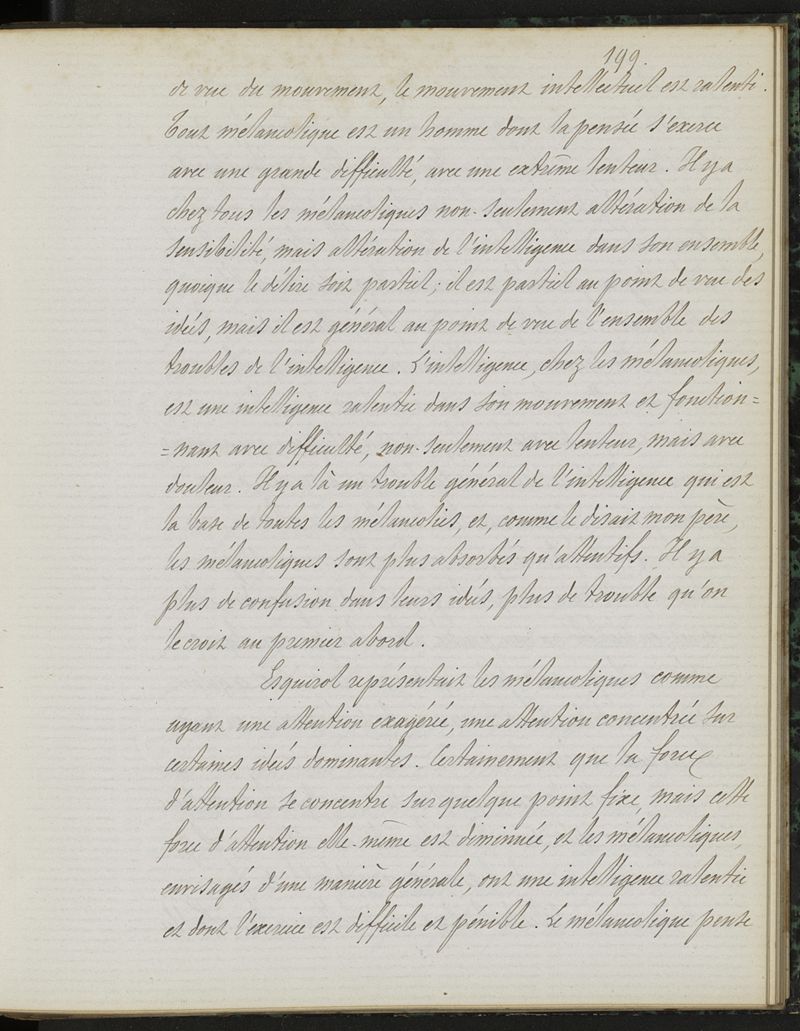 199.
de vue du mouvement, le mouvement intellectuel est ralenti.
Tout mélancolique est un homme dont la pensée s'exerce
avec une grande difficulté, avec une extrême lenteur. Il y a
chez tous les mélancoliques non-seulement altération de la
sensibilité, mais altération de l'intelligence dans son ensemble,
quoique le délire soit partiel; il est partiel au point de vue des
idées, mais il est général au point de vue de l'ensemble des
troubles de l'intelligence. L'intelligence, chez les mélancoliques,
est une intelligence ralentie dans son mouvement et fonction=
=nant avec difficulté, non-seulement avec lenteur, mais avec
douleur. Il y a là un trouble général de l'intelligence qui est
la base de toutes les mélancolies, et, comme le disait mon père,
les mélancoliques sont plus absorbés qu'attentifs. Il y a
plus de confusion dans leurs idées, plus de trouble qu'on
le croit au premier abord.
Esquirol représentait les mélancoliques comme
ayant une attention exagérée, une attention concentrée sur
certaines idées dominantes. Certainement que la force
d'attention se concentre sur quelque point fixe, mais cette
force d'attention elle-même est diminuée, et les mélancoliques,
envisagés d'une manière générale, ont une intelligence ralentie
et dont l'exercice est difficile et pénible. Le mélancolique pense